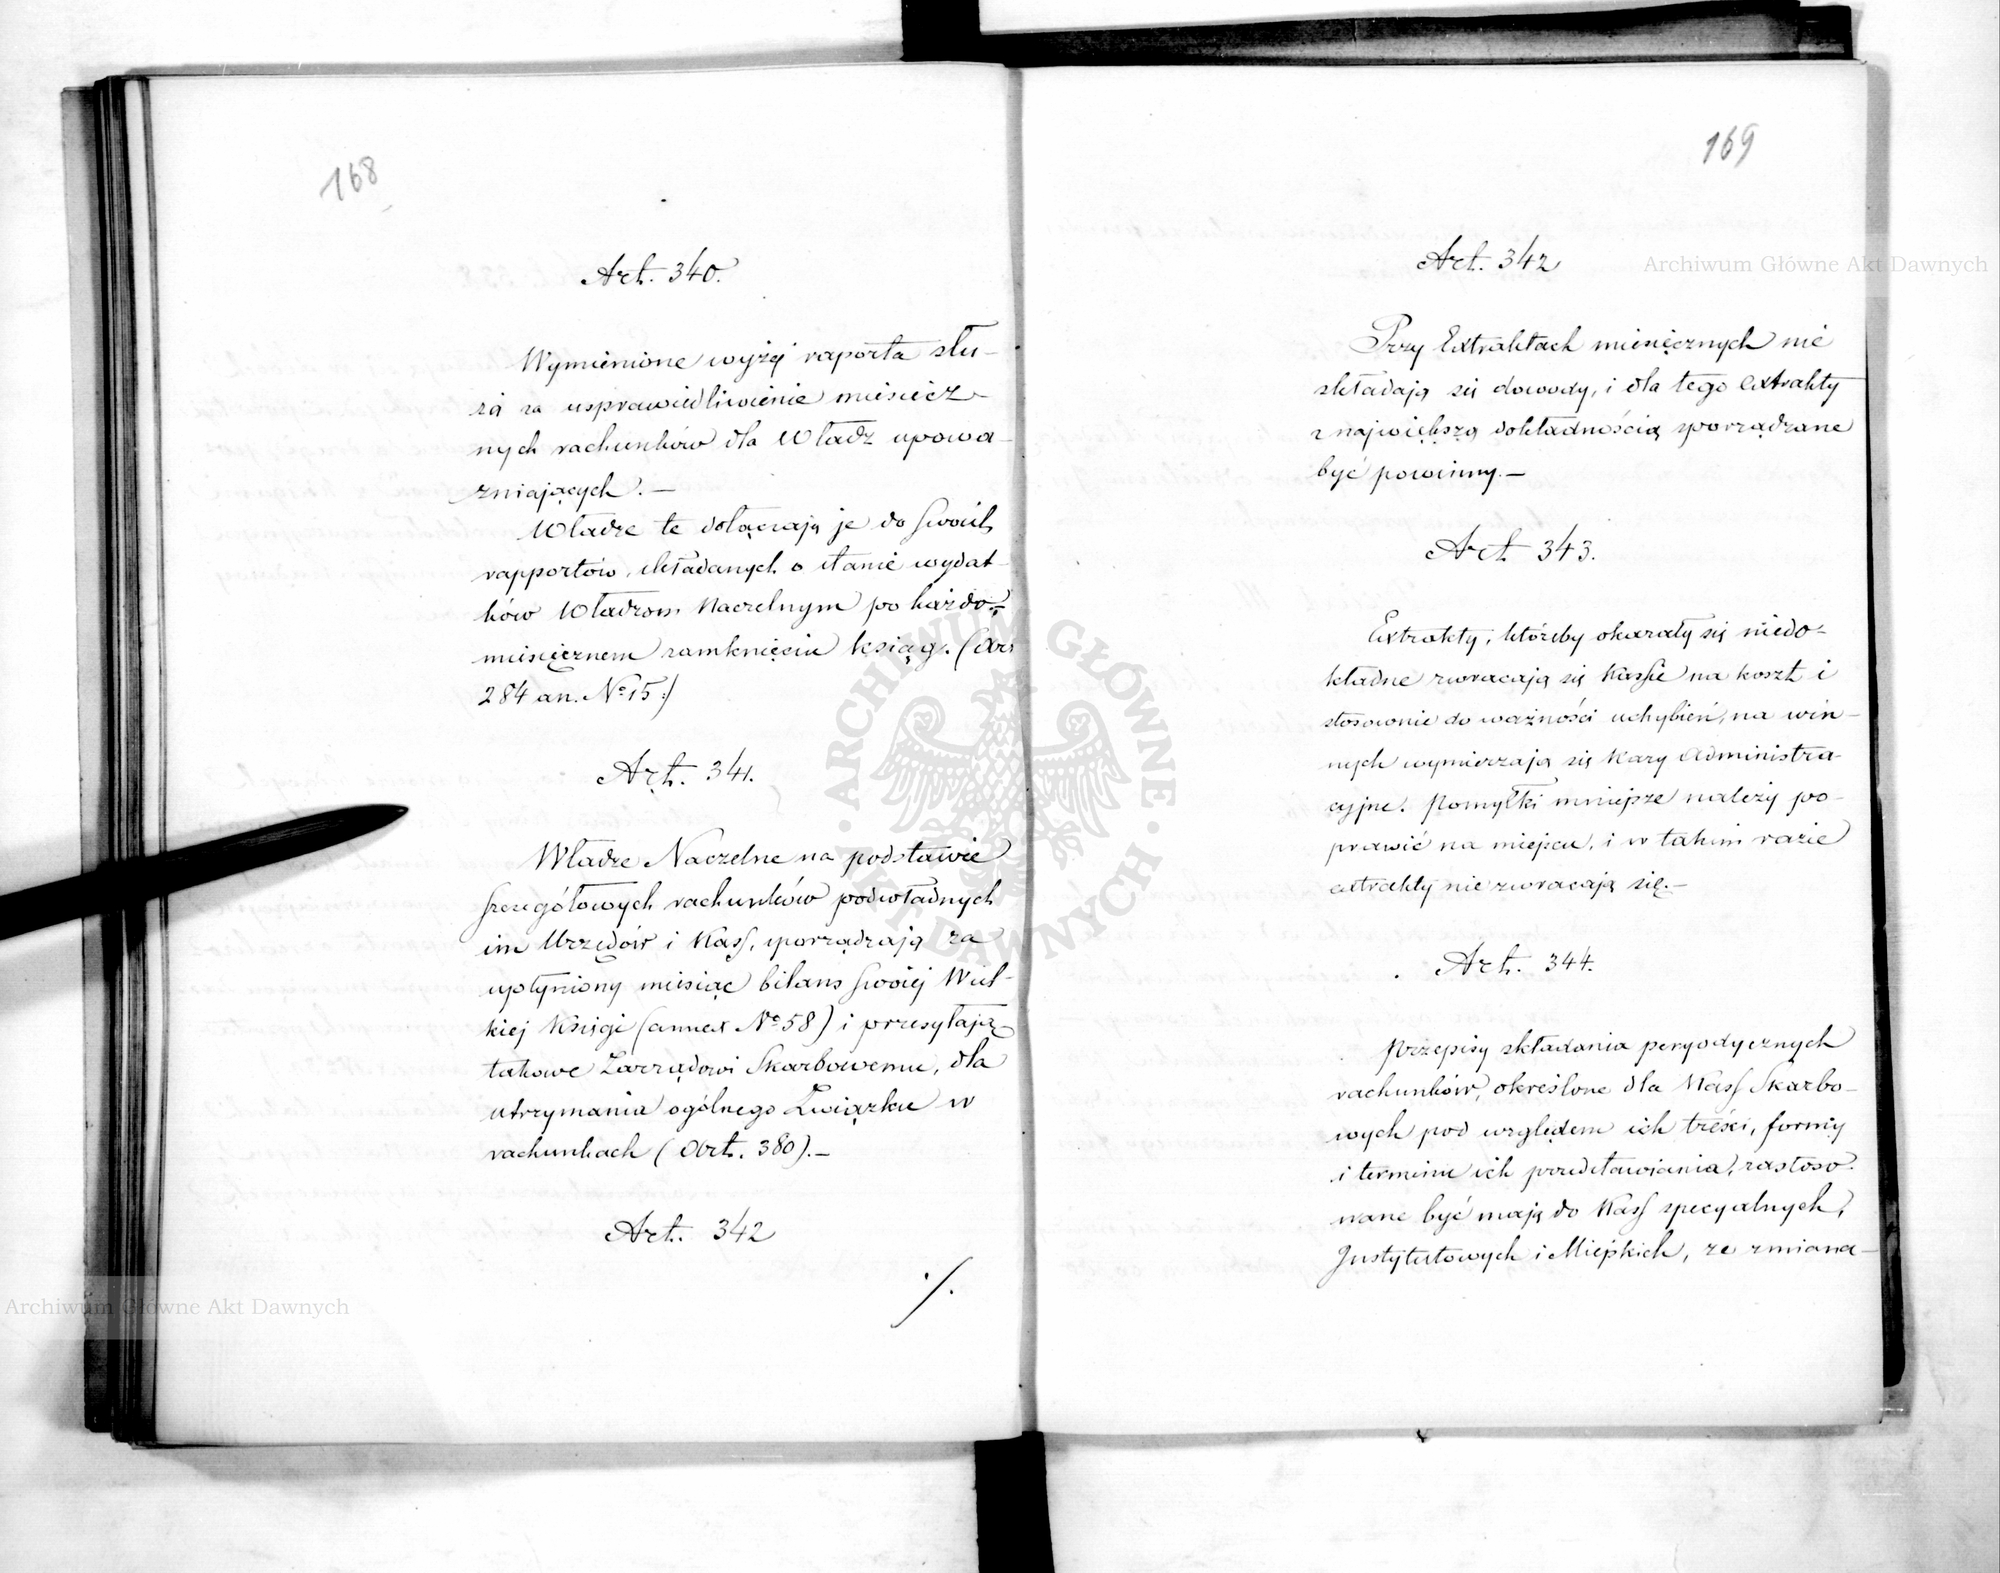 168
Art. 340.
Wymienione wyżej raporta słu-
żą za usprawiedliwienie miesięcz-
nych rachunków dla Władz upowa-
żniających.—
Władze te dołączają je do swoich
rapportów, składanych o stanie wydat-
ków Władzom Naczelnym po każdo-
miesięcznem zamknięciu ksiąg. (Art
284 an. No 15:)
Art. 341.
Władze Naczelne na podstawie
szczegółowych rachunków podwładnych
im Urzędów i Kass, sporządzają za
upłyniony miesiąc bilans swoiej Wiel-
kiej Księgi (annex No 58) i przesyłają
takowe Zarządowi Skarbowemu, dla
utrzymania ogólnego Związku w
rachunkach (Art. 380).—
Art. 342
./.
169
Art. 342
Przy Extraktach miesięcznych nie
składają się dowody, i dla tego extrakty
z największą dokładnością sporządzane
być powinny.—
Art 343.
Extrakty, któreby okazały się niedo-
kładne zwracają się Kassie na koszt i
stosownie do ważności uchybień, na win-
nych wymierzają się Kary Administra-
cyjne. Pomyłki mniejsze należy po-
prawić na miejscu, i w takim razie
extrakty nie zwracają się.—
Art. 344.
Przepisy składania peryodycznych
rachunków, określone dla Kass Skarbo-
wych pod względem ich treści, formy
i terminu ich przedstawiania, zastoso-
wane być mają do Kass specyalnych,
Instytutowych i Miejskich, ze zmiana-
Archiwum Główne Akt Dawnych
Archiwum Główne Akt Dawnych
ARCHIWUM GŁÓWNE AKT DAWNYCH